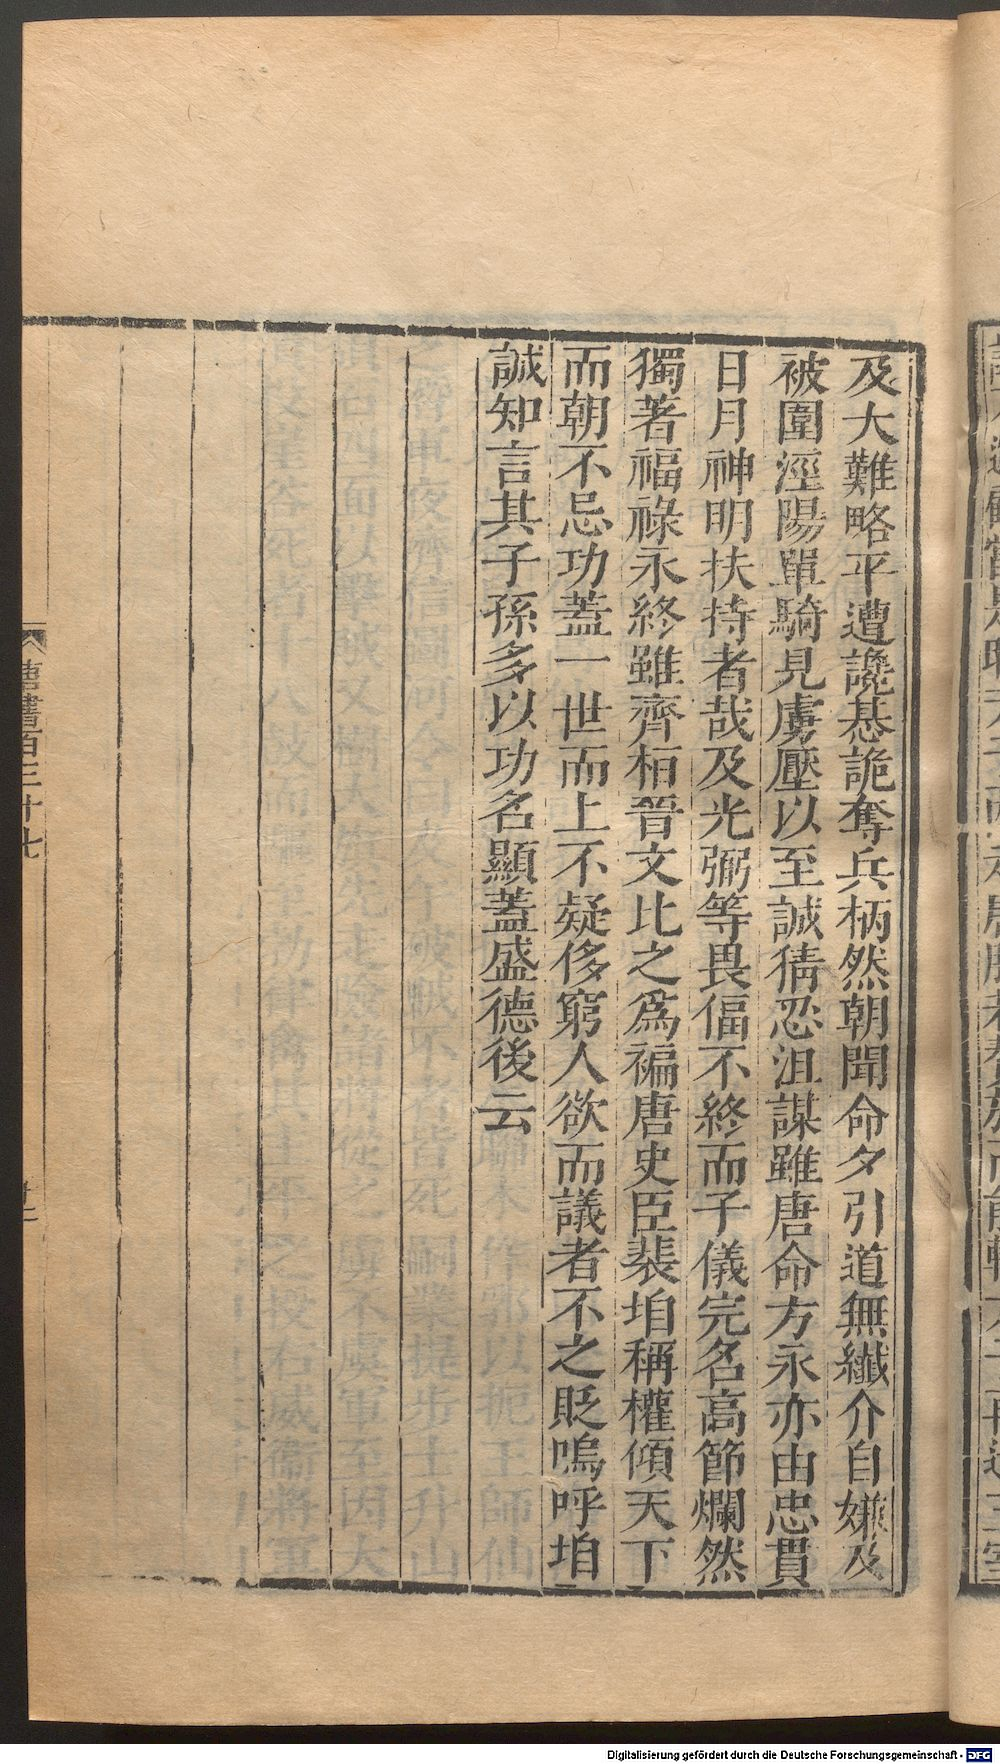 及大難略平遭讒惎詭奪兵柄然朝聞命夕引道無纖介自嫌及
被圍涇陽單騎見虜壓以至誠猜忍沮謀雖唐命方永亦由忠貫
日月神明扶持者哉及光弼等畏偪不終而子儀完名高節爛然
獨著福祿永終雖齊栢晉文比之爲褊唐史臣裴垍稱權傾天下
而朝不忌功蓋一世而上不疑侈窮人欲而議者不之貶嗚呼垍
誠知言其子孫多以功名顯蓋盛德後云
唐書百三十七
Digitalisierung gefördert durch die Deutsche Forschungsgemeinschaft - DFG